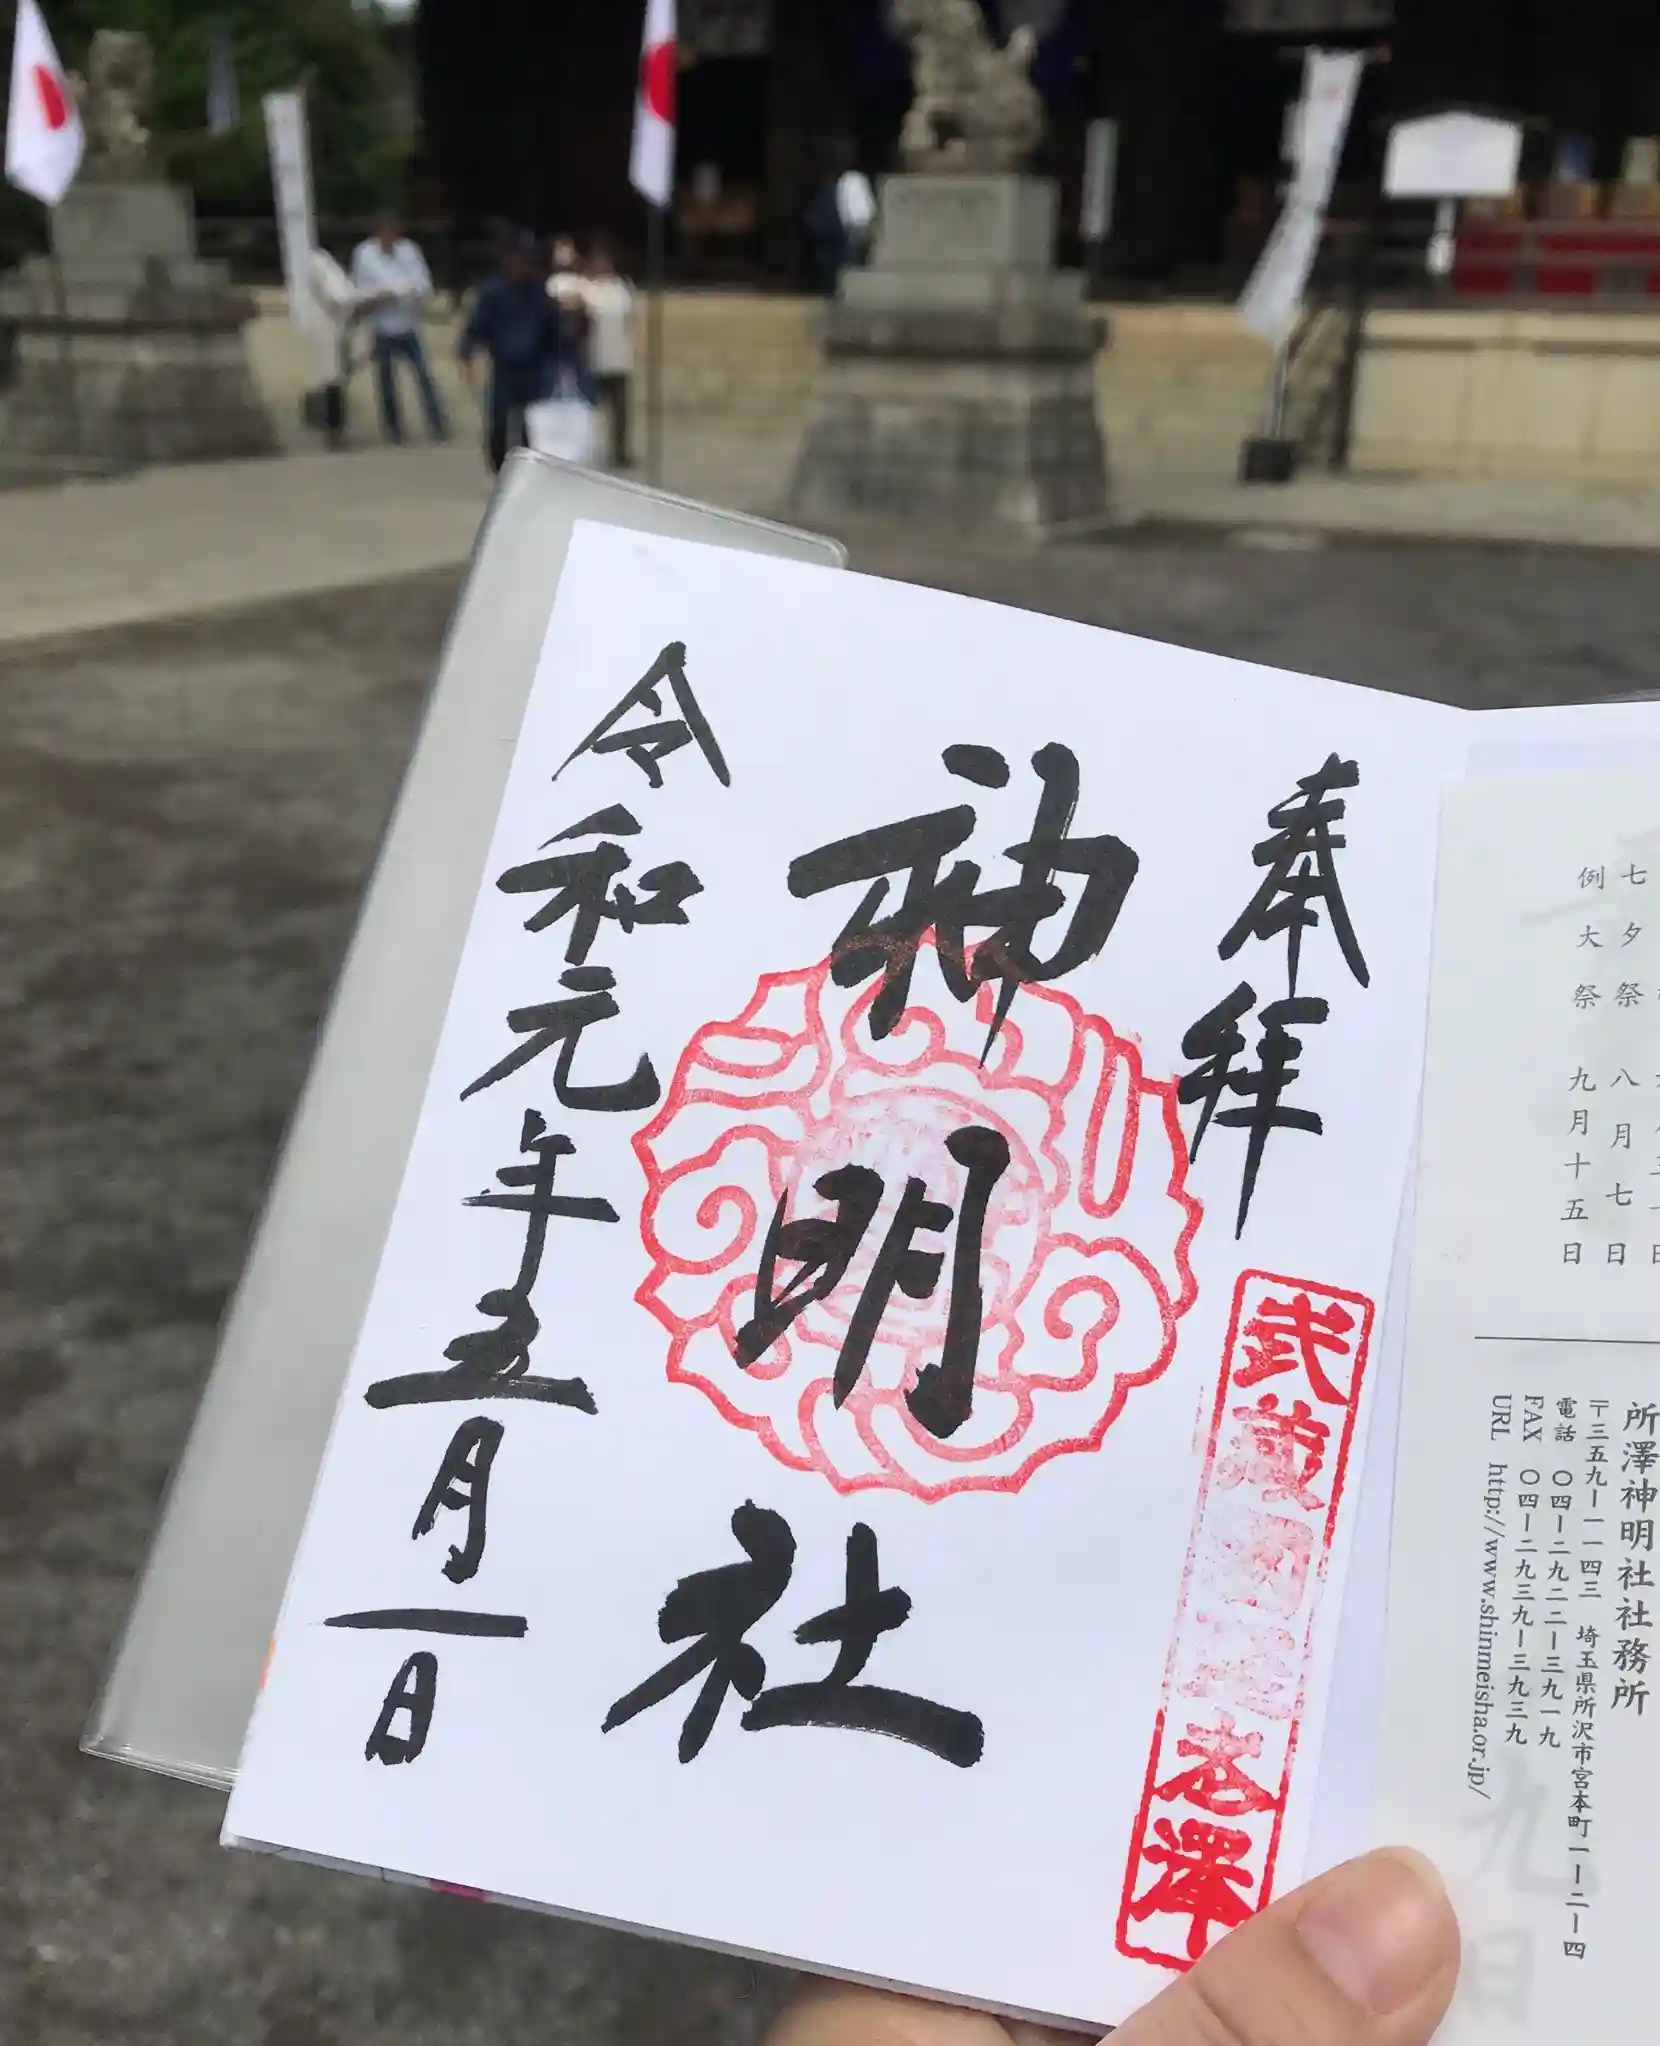 七夕祭 八月七日
例大祭 九月十五日
所澤神明社社務所
〒三五九ー一一四三 埼玉県所沢市宮本町一ー二ー四
電話 〇四ー二九二二ー三九一九
FAX 〇四ー二九三九ー三九三九
URL http://www.shinmeisha.or.jp/
奉拝
神明社
令和元年五月一日
武蔵
志澤